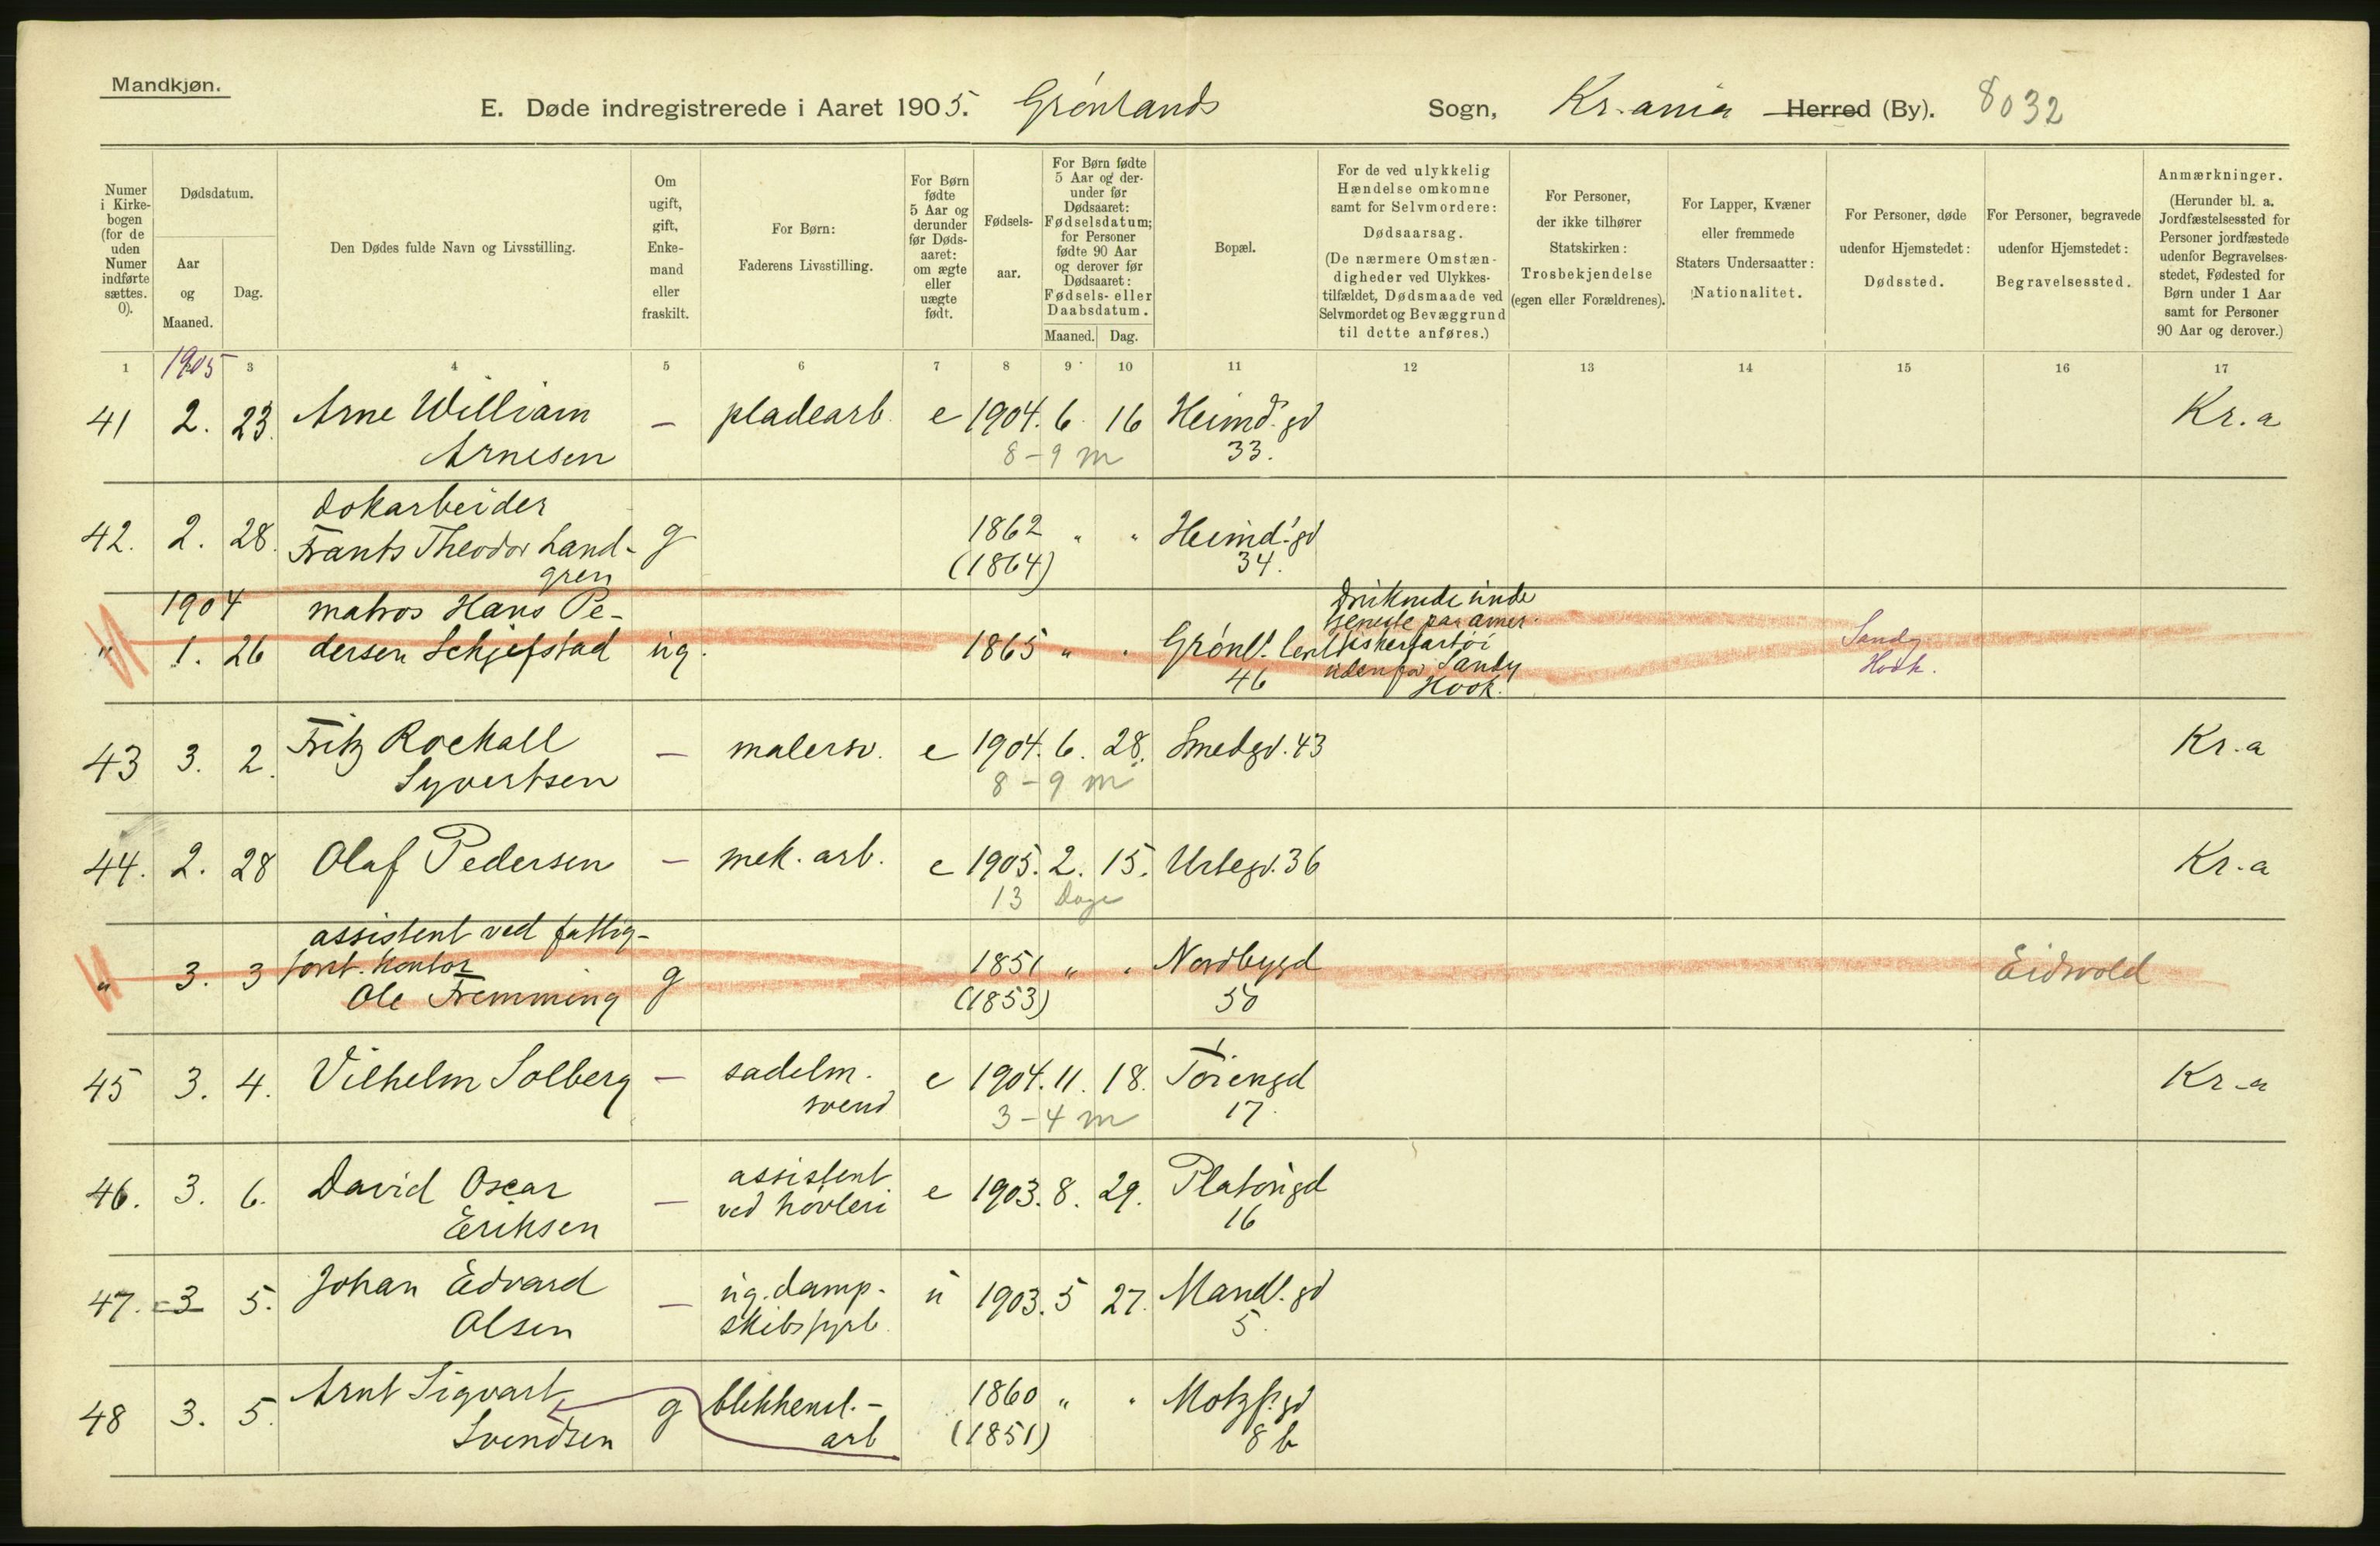 Mandkjøn.
E. Døde indregistrerede i Aaret 1905. Grønlands Sogn, Kr.ania Herred (By). 8032
Numer i Kirkebogen (for de uden Numer indførte sættes. 0).
Dødsdatum.
Aar og Maaned.
Dag.
Den Dødes fulde Navn og Livsstilling.
Om ugift, gift, Enkemand eller fraskilt.
For Børn: Faderens Livsstilling.
For Børn fødte 5 Aar og derunder før Dødsaaret: om ægte eller uægte født.
Fødselsaar.
For Børn fødte 5 Aar og derunder før Dødsaaret: Fødselsdatum; for Personer fødte 90 Aar og derover før Dødsaaret: Fødsels- eller Daabsdatum.
Maaned. Dag.
Bopæl.
For de ved ulykkelig Hændelse omkomne samt for Selvmordere: Dødsaarsag. (De nærmere Omstændigheder ved Ulykkestilfældet, Dødsmaade ved Selvmordet og Bevæggrund til dette anføres.)
For Personer, der ikke tilhører Statskirken: Trosbekjendelse (egen eller Forældrenes).
For Lapper, Kvæner eller fremmede Staters Undersaatter: Nationalitet.
For Personer, døde udenfor Hjemstedet: Dødssted.
For Personer, begravede udenfor Hjemstedet: Begravelsessted.
Anmærkninger. (Herunder bl. a. Jordfæstelsessted for Personer jordfæstede udenfor Begravelsesstedet, Fødested for Børn under 1 Aar samt for Personer 90 Aar og derover.)
1 1905 3 4 5 6 7 8 9 10 11 12 13 14 15 16 17
41 2. 23. Arne William — pladearb. e 1904. 6. 16 Heimd. gd Kr. a
Arnesen 8-9 m 33.
dokarbeider
42. 2. 28. Frants Theodor Land- g 1862 " " Heimd. gd
gren (1864) 34.
1904 matros Hans Pe- Druknede unde
" 1. 26 dersen Schjefstad ug. 1865 " " Grønl. tjeneste paa amer. Sandy
46 fiskerfartøi Hook.
udenfor Sandy
Hook.
43 3. 2. Fritz Rockall — malersv. e 1904. 6. 28. Smedgd. 43 Kr. a
Syvertsen 8-9 m
44. 2. 28 Olaf Pedersen — mek. arb. e 1905. 2. 15. Urtegd. 36 Kr. a
13 Dage
assistent ved fattig-
" 3. 3 forst. kontor g 1851 " " Nordbygd Eidsvold
Ole Fremming (1853) 50
45 3. 4. Vilhelm Solberg — sadelm. e 1904. 11. 18. Tøiengd Kr-a
svend 3-4 m 17.
46. 3. 6. David Oscar — assistent e 1903. 8. 29. Platøugd
Eriksen ved høvleri 16
47. 3 5. Johan Edvard — ug. damp- u 1903. 5 27. Mandl. gd
Olsen skibsfyrb. 5.
48 3. 5. Arnt Sigvart g blikkensl.- 1860 " " Motzf. gd
Svendsen arb (1851) 8 b